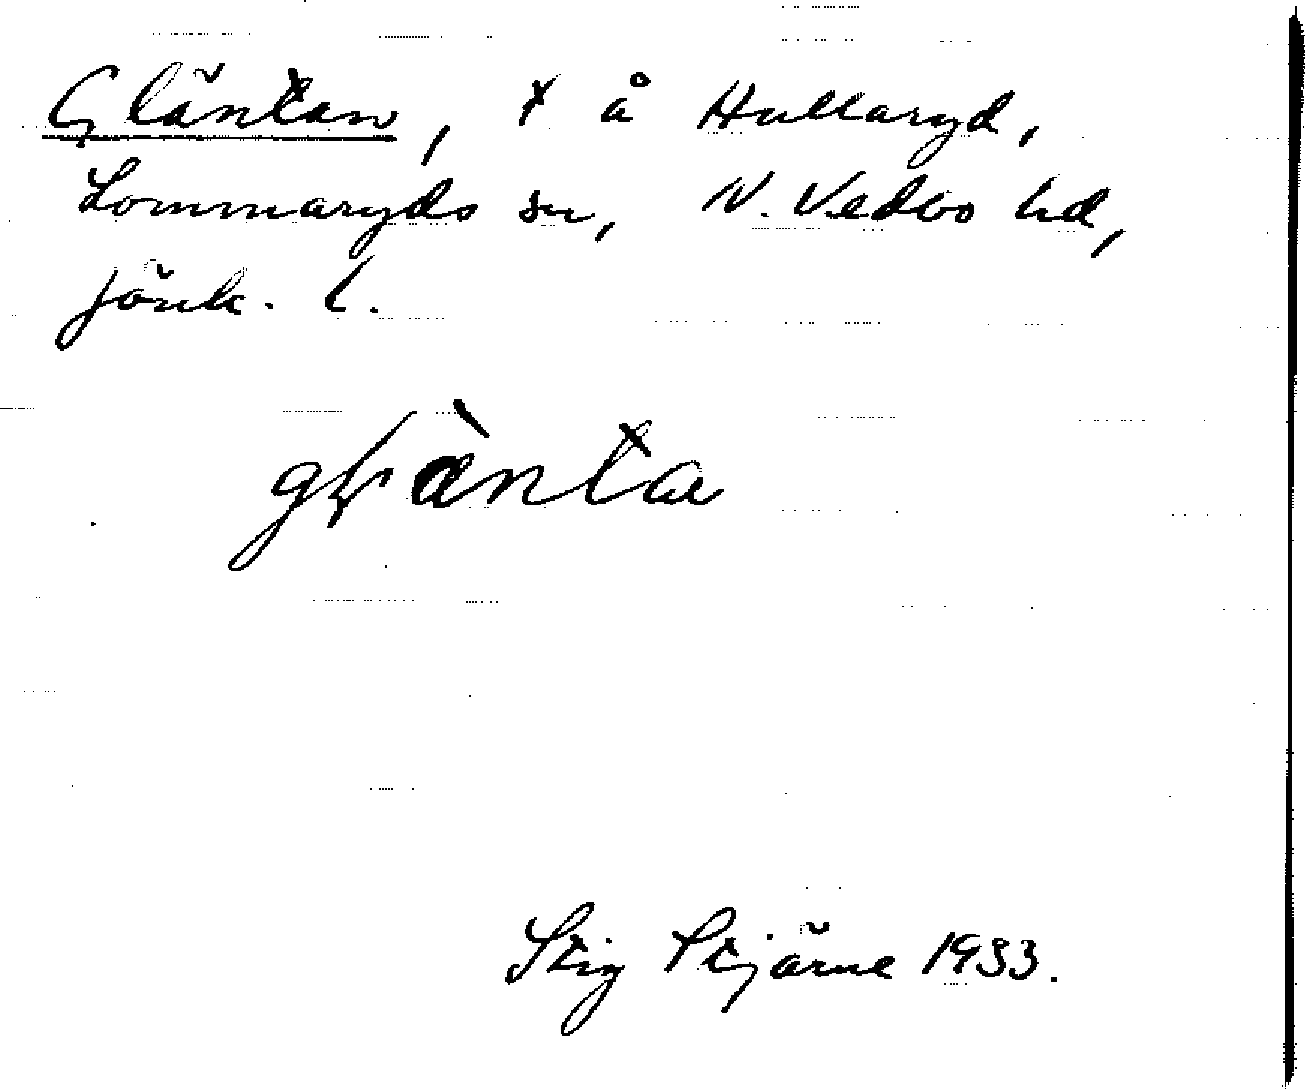 Gläntan, x å Hullaryd,
Lommaryds sn, N. Vedbo hd,
Jönk. l.
glänta
Stig Stjärne 1933.